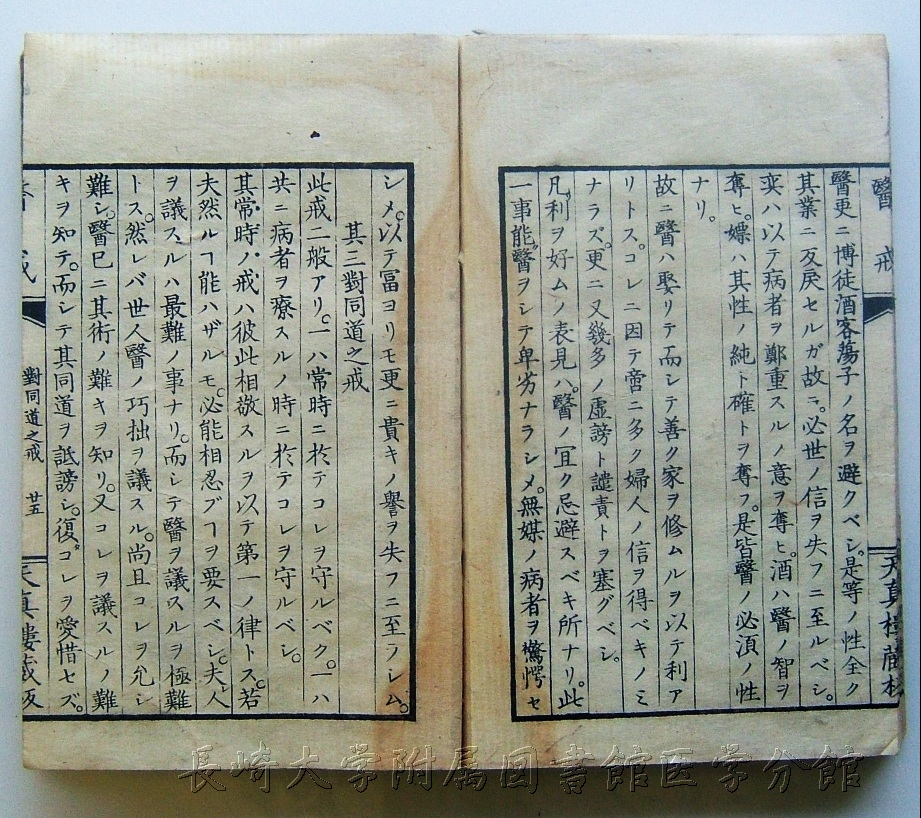 醫戒
天真樓蔵板
醫更ニ博徒酒客蕩子ノ名ヲ避クベシ。是等ノ性全ク
其業ニ反戻セルガ故ニ。必世ノ信ヲ失フニ至ルベシ。
奕ハ以テ病者ヲ鄭重スルノ意ヲ奪ヒ。酒ハ醫ノ智ヲ
奪ヒ。嫖ハ其性ノ純ト確トヲ奪フ。是皆醫ノ必湏ノ性
ナリ。
故ニ醫ハ娶リテ而シテ善ク家ヲ修ムルヲ以テ利ア
リトス。コレニ因テ啻ニ多ク婦人ノ信ヲ得ベキノミ
ナラズ。更ニ又幾多ノ虚謗ト譴責トヲ塞グベシ。
凡利ヲ好ムノ表見ハ。醫ノ宜ク忌避スベキ所ナリ。此
一事能醫ヲシテ卑劣ナラシメ。無媒ノ病者ヲ驚愕セ
シメ。以テ冨ヨリモ更ニ貴キノ譽ヲ失フニ至ラシム。
其三對同道之戒
此戒二般アリ。一ハ常時ニ於テコレヲ守ルベク。一ハ
共ニ病者ヲ療スルノ時ニ於テコレヲ守ルベシ。
其常時ノ戒ハ彼此相敬スルヲ以テ第一ノ律トス。若
夫然ルヿ能ハザルモ。必能相忍ブヿヲ要スベシ。夫人
ヲ議スルハ最難ノ事ナリ。而シテ醫ヲ議スルヲ極難
トス。然レバ世人醫ノ巧拙ヲ議スル。尚且コレヲ允シ
難シ。醫已ニ其術ノ難キヲ知リ。又コレヲ議スルノ難
キヲ知テ。而シテ其同道ヲ詆謗シ。復コレヲ愛惜セズ。
醫戒
對同道之戒
廿五
天真樓蔵板
長崎大学附属図書館医学分館